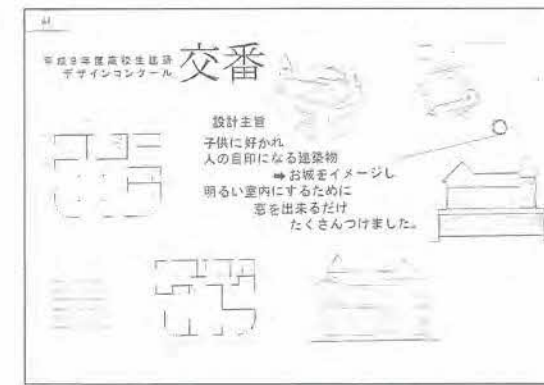 平成9年度高校生建築
デザインコンクール
交番
設計主旨
子供に好かれ
人の目印になる建築物
➡お城をイメージし
明るい室内にするために
窓を出来るだけ
たくさんつけました。